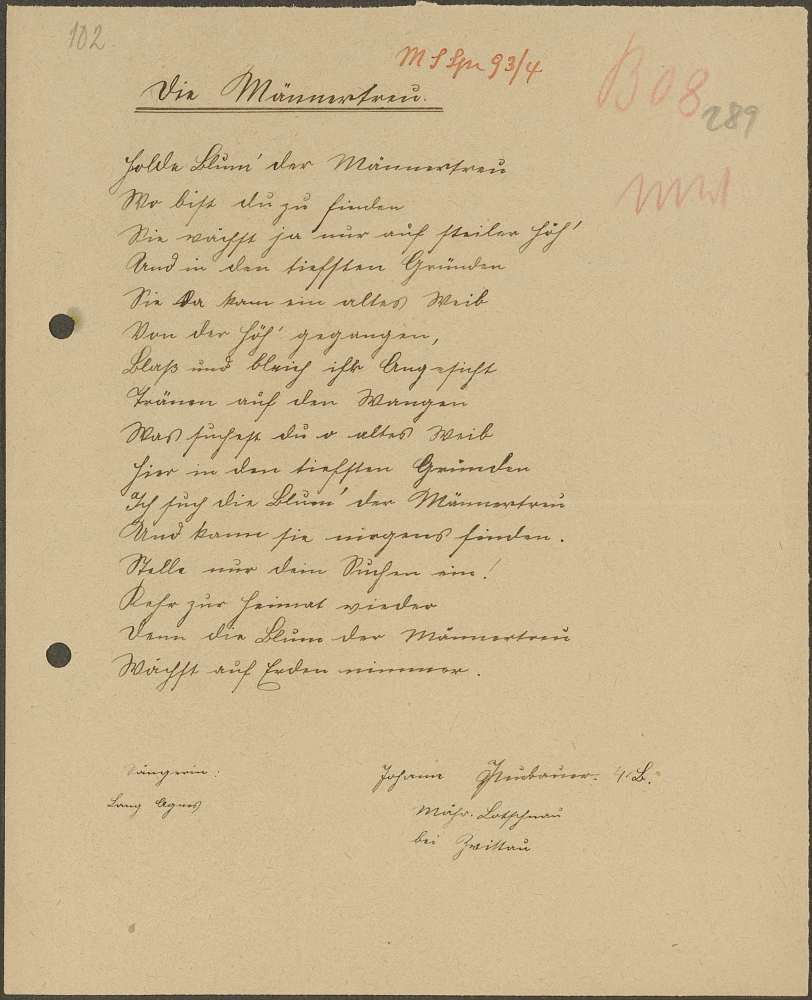 102.
M S Spr 93/4
B 08
289
Die Männertreu.
Holde Blum' der Männertreu
Wo bist du zu finden
Sie wächst ja nur auf steiler Höh'
Und in den tiefsten Gründen
Sie da kam ein altes Weib
Von der Höh' gegangen,
Blaß und bleich ihr Angesicht
Tränen auf den Wangen
Was suchest du o altes Weib
Hier in den tiefsten Gründen
Ich such die Blum' der Männertreu
Und kann sie nirgens finden.
Stelle nur dein Suchen ein!
Kehr zur Heimat wieder
Denn die Blum der Männertreu
Wächst auf Erden nimmer.
Sängerin:
Lang Agnes
Johann Neubauer. 4. B.
Mähr. Lotschnau
bei Zwittau